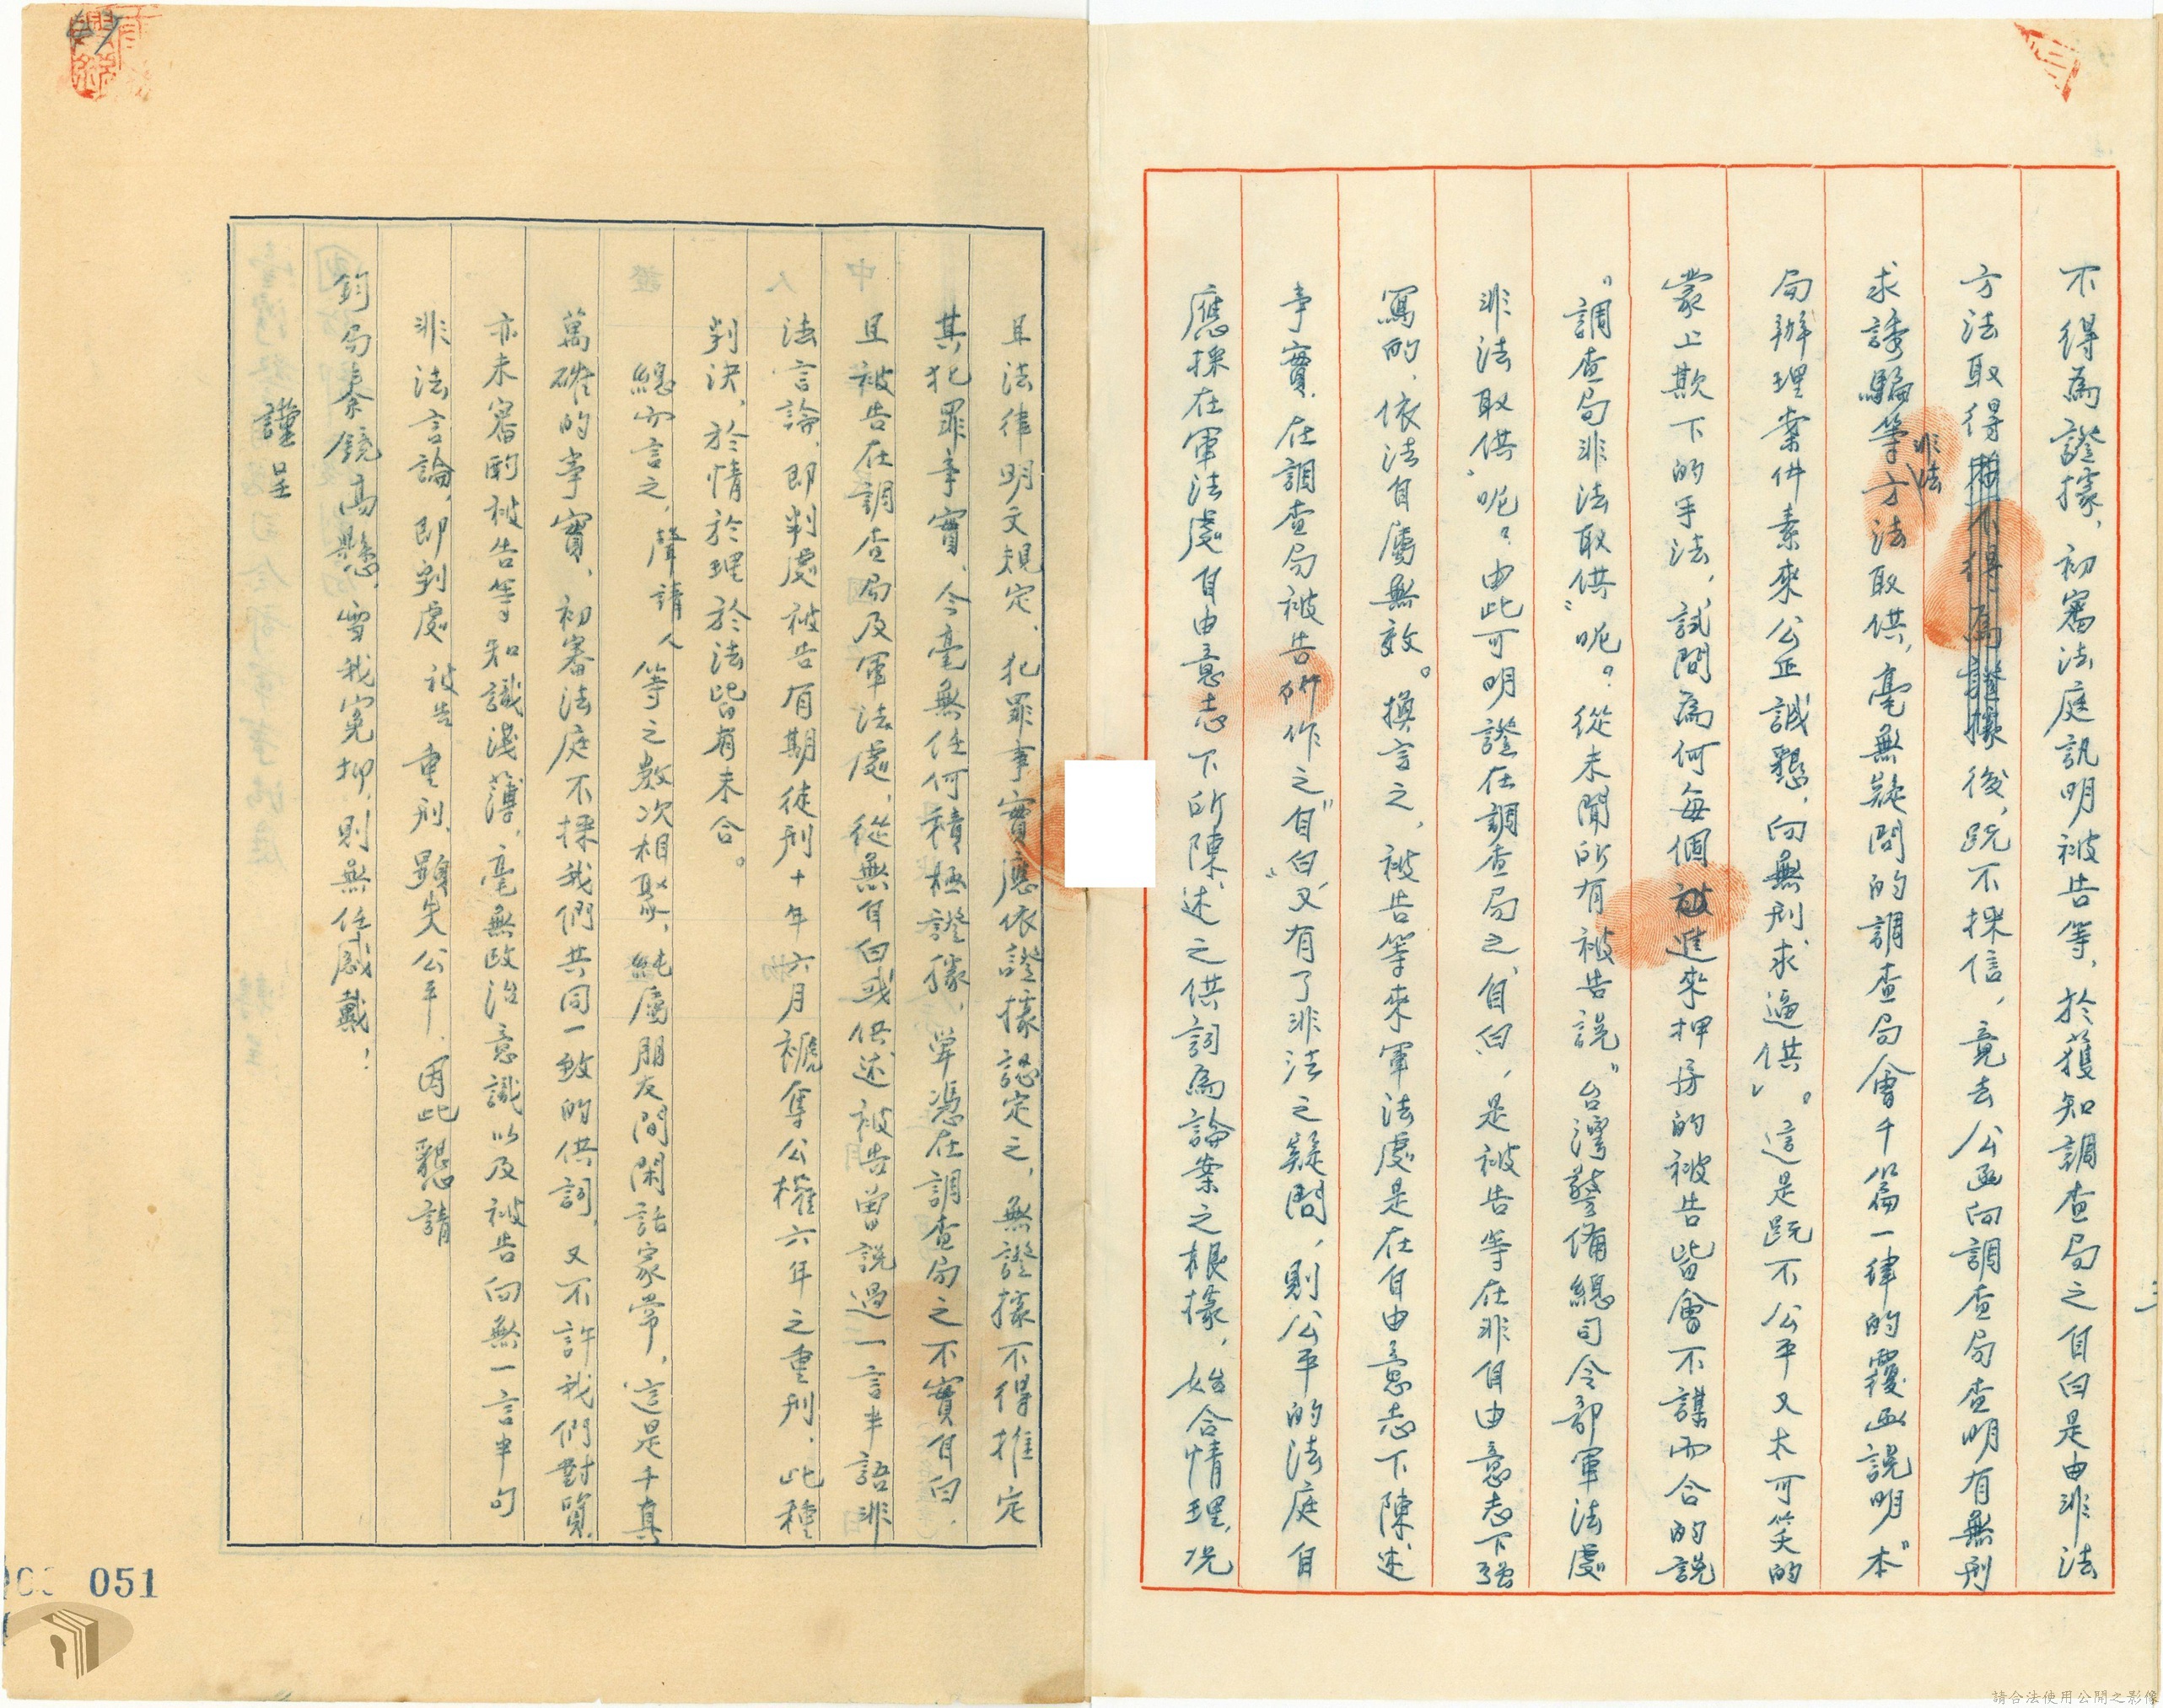 不得為證據，初審法庭訊明被告等，於獲知調查局之自白是由非法
方法取得後，既不採信，竟去公函向調查局查明有無刑
求誘騙等非法方法取供，毫無疑問的調查局會千篇一律的覆函說明“本
局辦理案件素來公正誠懇，向無刑求逼供”。這是既不公平又太可笑的
蒙上欺下的手法，試問為何每個進來押房的被告皆會不謀而合的說
“調查局非法取供”呢。從未聞所有被告說“台灣警備總司令部軍法處
非法取供”呢？由此可明證在調查局之自白，是被告等在非自由意志下強
寫的，依法自屬無效。換言之，被告等來軍法處是在自由意志下陳述
事實，在調查局被告所作之“自白”又有了非法之疑問，則公平的法庭自
應採在軍法處自由意志下所陳述之供詞為論案之根據，始合情理，况
且法律明文規定，犯罪事實應依證據認定之，無證據不得推定
其犯罪事實，今毫無任何積極證據，單憑在調查局之不實自白，
且被告在調查局及軍法處，從無自白或供述被告曾說過一言半語非
法言論，即判處被告有期徒刑十年六月褫奪公權六年之重刑，此種
判決，於情於理於法皆有未合。
總而言之，聲請人等之数次相聚，純屬朋友間閑話家常，這是千真
萬確的事實，初審法庭不採我們共同一致的供詞，又不許我們對質，
亦未審酌被告等知識淺薄，毫無政治意識以及被告向無一言半句
非法言論，即判處被告重刑，顯失公平，因此懇請
鈞局秦鏡高懸，雪我冤抑，則無任感戴！
謹呈
051
請合法使用公開之影像